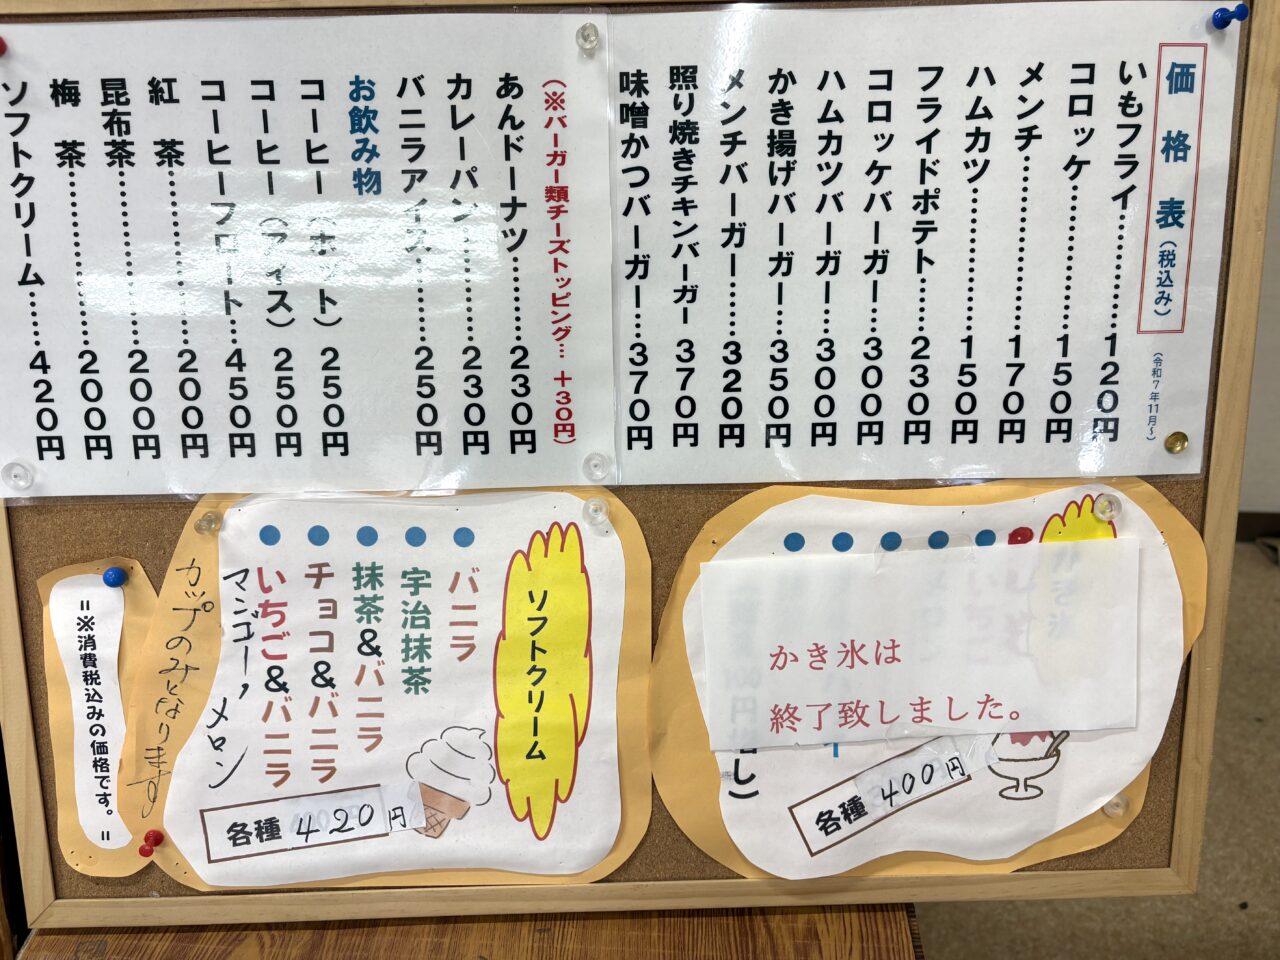 価格表(税込み)
(令和7年11月~)
いもフライ……………120円
コロッケ……………150円
メンチ……………170円
ハムカツ……………150円
フライドポテト………230円
コロッケバーガー……300円
ハムカツバーガー……300円
かき揚げバーガー……350円
メンチバーガー………320円
照り焼きチキンバーガー 370円
味噌かつバーガー……370円
(※バーガー類チーズトッピング… +30円)
あんドーナツ…………230円
カレーパン……………230円
バニラアイス…………250円
お飲み物
コーヒー(ホット)250円
コーヒー(アイス)250円
コーヒーフロート……450円
紅 茶……………200円
昆布茶……………200円
梅 茶……………200円
ソフトクリーム………420円
かき氷は
終了致しました。
し)
各種 400円
ソフトクリーム
●バニラ
●宇治抹茶
●抹茶&バニラ
●チョコ&バニラ
●いちご&バニラ
マンゴー,メロン
カップのみとなります
各種 420円
=※消費税込みの価格です。=